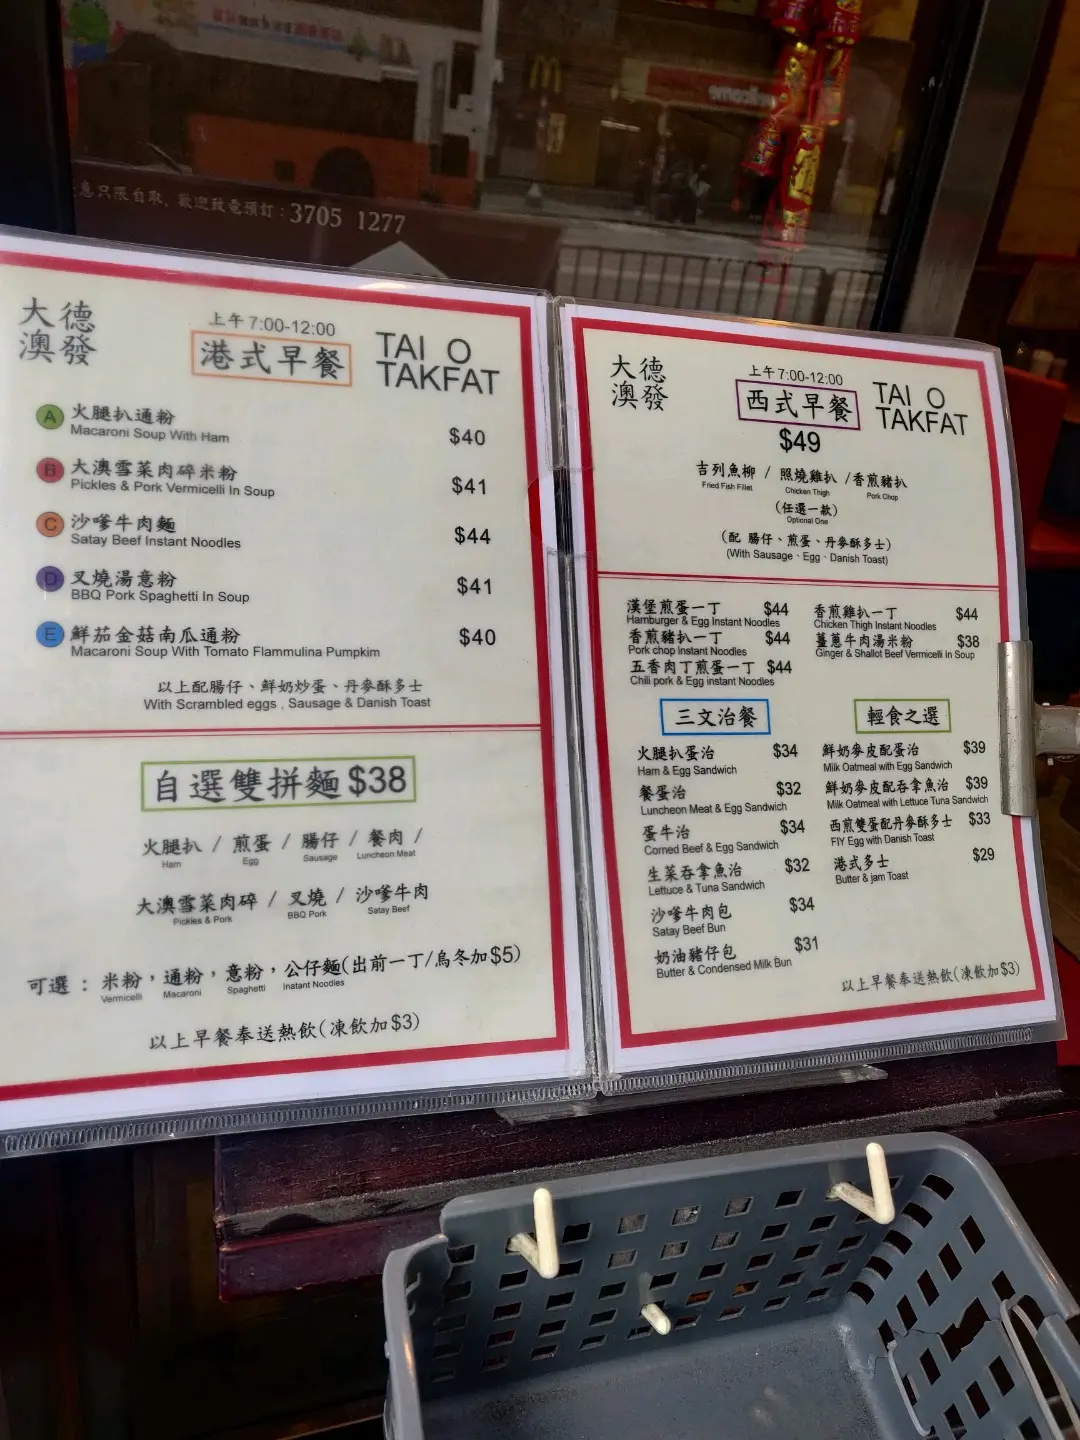 息只限自取, 歡迎致電預訂 : 3705 1277
welcome
大德
澳發
上午 7:00-12:00
港式早餐
TAI O
TAKFAT
A 火腿扒通粉
Macaroni Soup With Ham
$40
B 大澳雪菜肉碎米粉
Pickles & Pork Vermicelli In Soup
$41
C 沙嗲牛肉麵
Satay Beef Instant Noodles
$44
D 叉燒湯意粉
BBQ Pork Spaghetti In Soup
$41
E 鮮茄金菇南瓜通粉
Macaroni Soup With Tomato Flammulina Pumpkim
$40
以上配腸仔、鮮奶炒蛋、丹麥酥多士
With Scrambled eggs , Sausage & Danish Toast
自選雙拼麵 $38
火腿扒 / 煎蛋 / 腸仔 / 餐肉 /
Ham Egg Sausage Luncheon Meat
大澳雪菜肉碎 / 叉燒 / 沙嗲牛肉
Pickles & Pork BBQ Pork Satay Beef
可選 : 米粉, 通粉, 意粉, 公仔麵(出前一丁/烏冬加$5)
Vermicelli Macaroni Spaghetti Instant Noodles
以上早餐奉送熱飲(凍飲加$3)
大德
澳發
上午 7:00-12:00
西式早餐
$49
TAI O
TAKFAT
吉列魚柳 / 照燒雞扒 /香煎豬扒
Fried Fish Fillet Chicken Thigh Pork Chop
(任選一款)
Optional One
(配 腸仔、煎蛋、丹麥酥多士)
(With Sausage、Egg、Danish Toast)
漢堡煎蛋一丁 $44
Hamburger & Egg Instant Noodles
香煎豬扒一丁 $44
Pork chop Instant Noodles
五香肉丁煎蛋一丁 $44
Chili pork & Egg instant Noodles
香煎雞扒一丁 $44
Chicken Thigh Instant Noodles
薑蔥牛肉湯米粉 $38
Ginger & Shallot Beef Vermicelli In Soup
三文治餐
火腿扒蛋治 $34
Ham & Egg Sandwich
餐蛋治 $32
Luncheon Meat & Egg Sandwich
蛋牛治 $34
Corned Beef & Egg Sandwich
生菜吞拿魚治 $32
Lettuce & Tuna Sandwich
沙嗲牛肉包 $34
Satay Beef Bun
奶油豬仔包 $31
Butter & Condensed Milk Bun
輕食之選
鮮奶麥皮配蛋治 $39
Milk Oatmeal with Egg Sandwich
鮮奶麥皮配吞拿魚治 $39
Milk Oatmeal with Lettuce Tuna Sandwich
西煎雙蛋配丹麥酥多士 $33
FIY Egg with Danish Toast
港式多士 $29
Butter & jam Toast
以上早餐奉送熱飲(凍飲加$3)